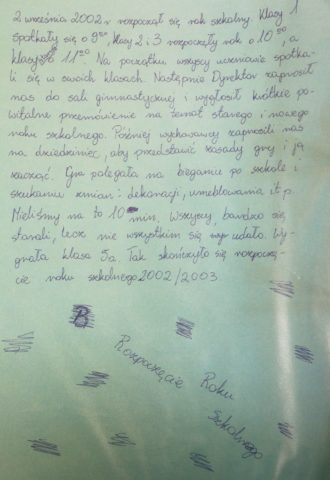 2 września 2002 r rozpoczął się rok szkolny. Klasy 1
spotkały się o 9⁰⁰, klasy 2 i 3 rozpoczęły rok o 10⁰⁰, a
klasy o 11⁰⁰. Na początku wszyscy uczniowie spotka-
li się w swoich klasach. Następnie Dyrektor zaprosił
nas do sali gimnastycznej i wygłosił krótkie po-
witalne przemówienie na temat starego i nowego
roku szkolnego. Później wychowawcy zaprosili nas
na dziedziniec, aby przedstawić zasady gry i ją
zacząć. Gra polegała na bieganiu po szkole i
szukaniu zmian: dekoracji, umeblowania i t.p.
Mieliśmy na to 10 min. Wszyscy, bardzo się
starali, lecz nie wszystkim się udało. Wy-
grała klasa 5a. Tak skończyło się rozpoczę-
cie roku szkolnego 2002/2003.
B
Rozpoczęcie Roku
Szkolnego